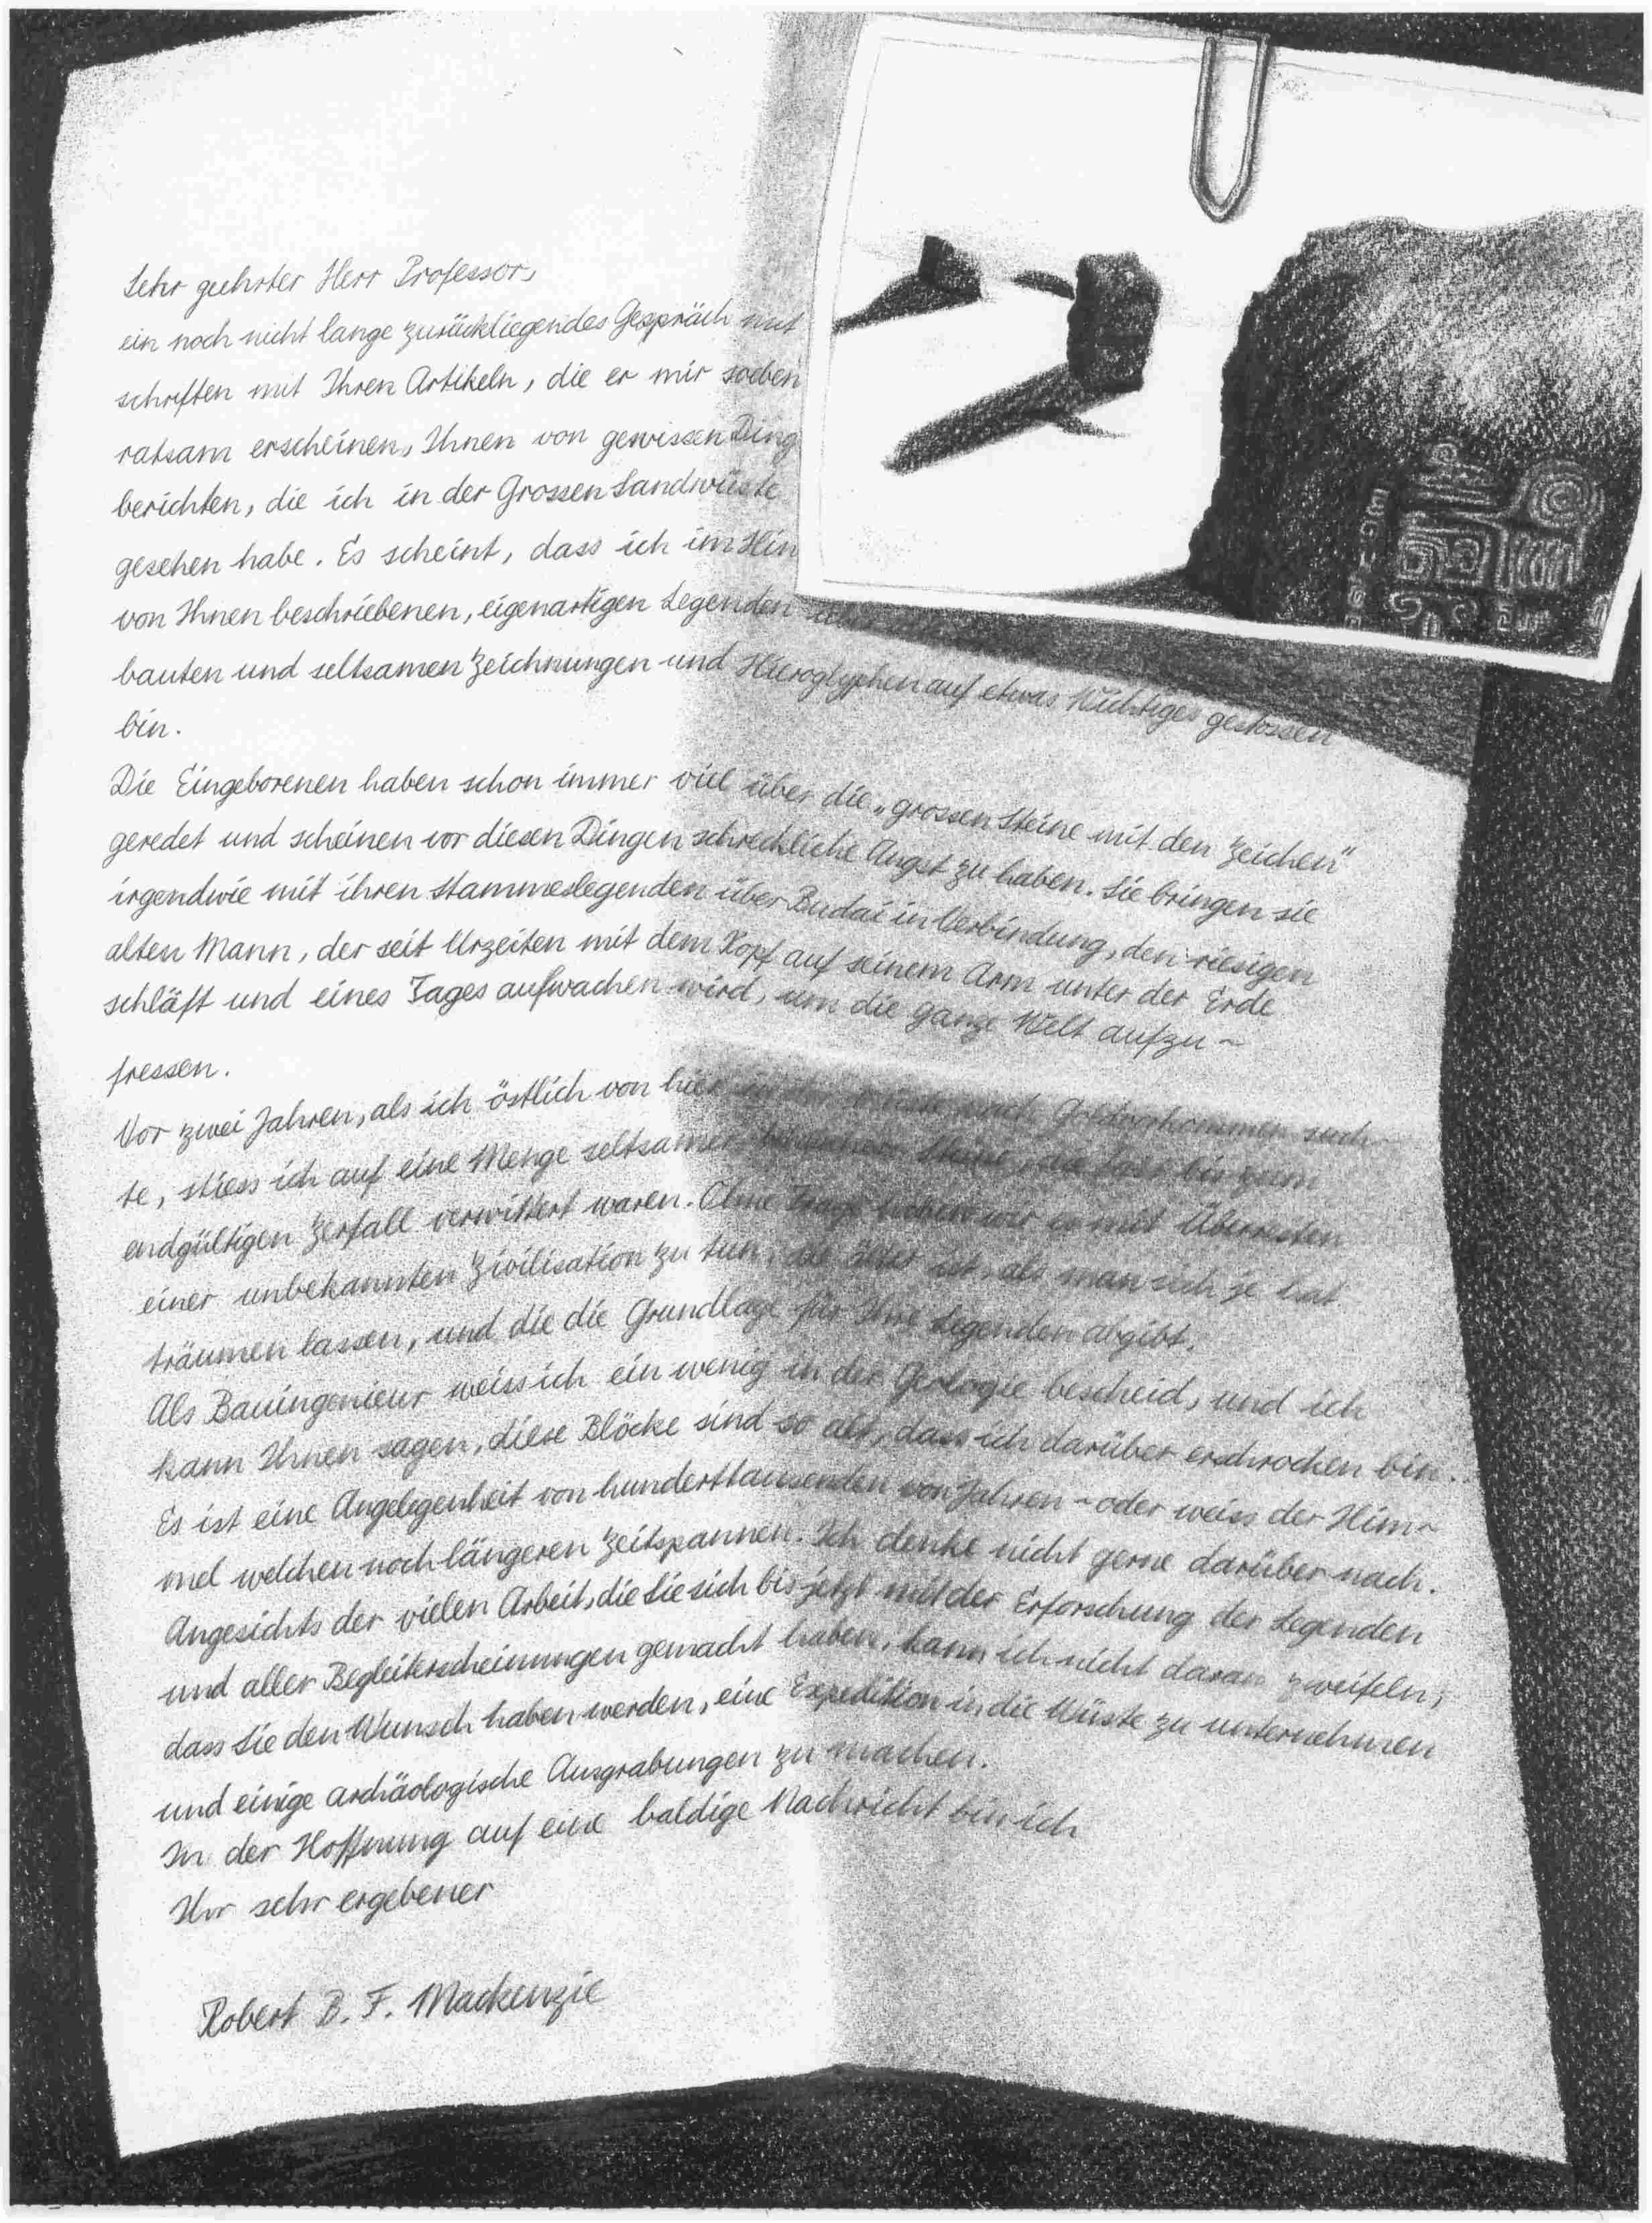 Sehr geehrter Herr Professor,
ein noch nicht lange zurückliegendes Gespräch mit
schriften mit Ihren Artikeln, die er mir soeben
ratsam erscheinen, Ihnen von gewissen Ding
berichten, die ich in der Grossen Sandwüste
gesehen habe. Es scheint, dass ich im Hin
von Ihnen beschriebenen, eigenartigen Legenden
bauten und seltsamen Zeichnungen und Hieroglyphen auf etwas Wichtiges gestossen
bin.
Die Eingeborenen haben schon immer viel über die „grossen Steine mit den Zeichen"
geredet und scheinen vor diesen Dingen schreckliche Angst zu haben. Sie bringen sie
irgendwie mit ihren Stammeslegenden über Budai in Verbindung, den riesigen
alten Mann, der seit Urzeiten mit dem Kopf auf seinem Arm unter der Erde
schläft und eines Tages aufwachen wird, um die ganze Welt aufzu-
fressen.
Vor zwei Jahren, als ich östlich von hier nach Goldvorkommen such-
te, stiess ich auf eine Menge seltsamer behauener Steine, die fast bis zum
endgültigen Zerfall verwittert waren. Ohne Frage haben wir es mit Überresten
einer unbekannten Zivilisation zu tun, die älter ist, als man sich je hat
träumen lassen, und die die Grundlage für Ihre Legenden abgibt.
Als Bauingenieur weiss ich ein wenig in der Geologie bescheid, und ich
kann Ihnen sagen, diese Blöcke sind so alt, dass ich darüber erschrocken bin.
Es ist eine Angelegenheit von hunderttausenden von Jahren - oder weiss der Him-
mel welchen noch längeren Zeitspannen. Ich denke nicht gerne darüber nach.
Angesichts der vielen Arbeit, die Sie sich bis jetzt mit der Erforschung der Legenden
und aller Begleiterscheinungen gemacht haben, kann ich nicht daran zweifeln,
dass Sie den Wunsch haben werden, eine Expedition in die Wüste zu unternehmen
und einige archäologische Ausgrabungen zu machen.
In der Hoffnung auf eine baldige Nachricht bin ich
Ihr sehr ergebener
Robert B. F. Mackenzie